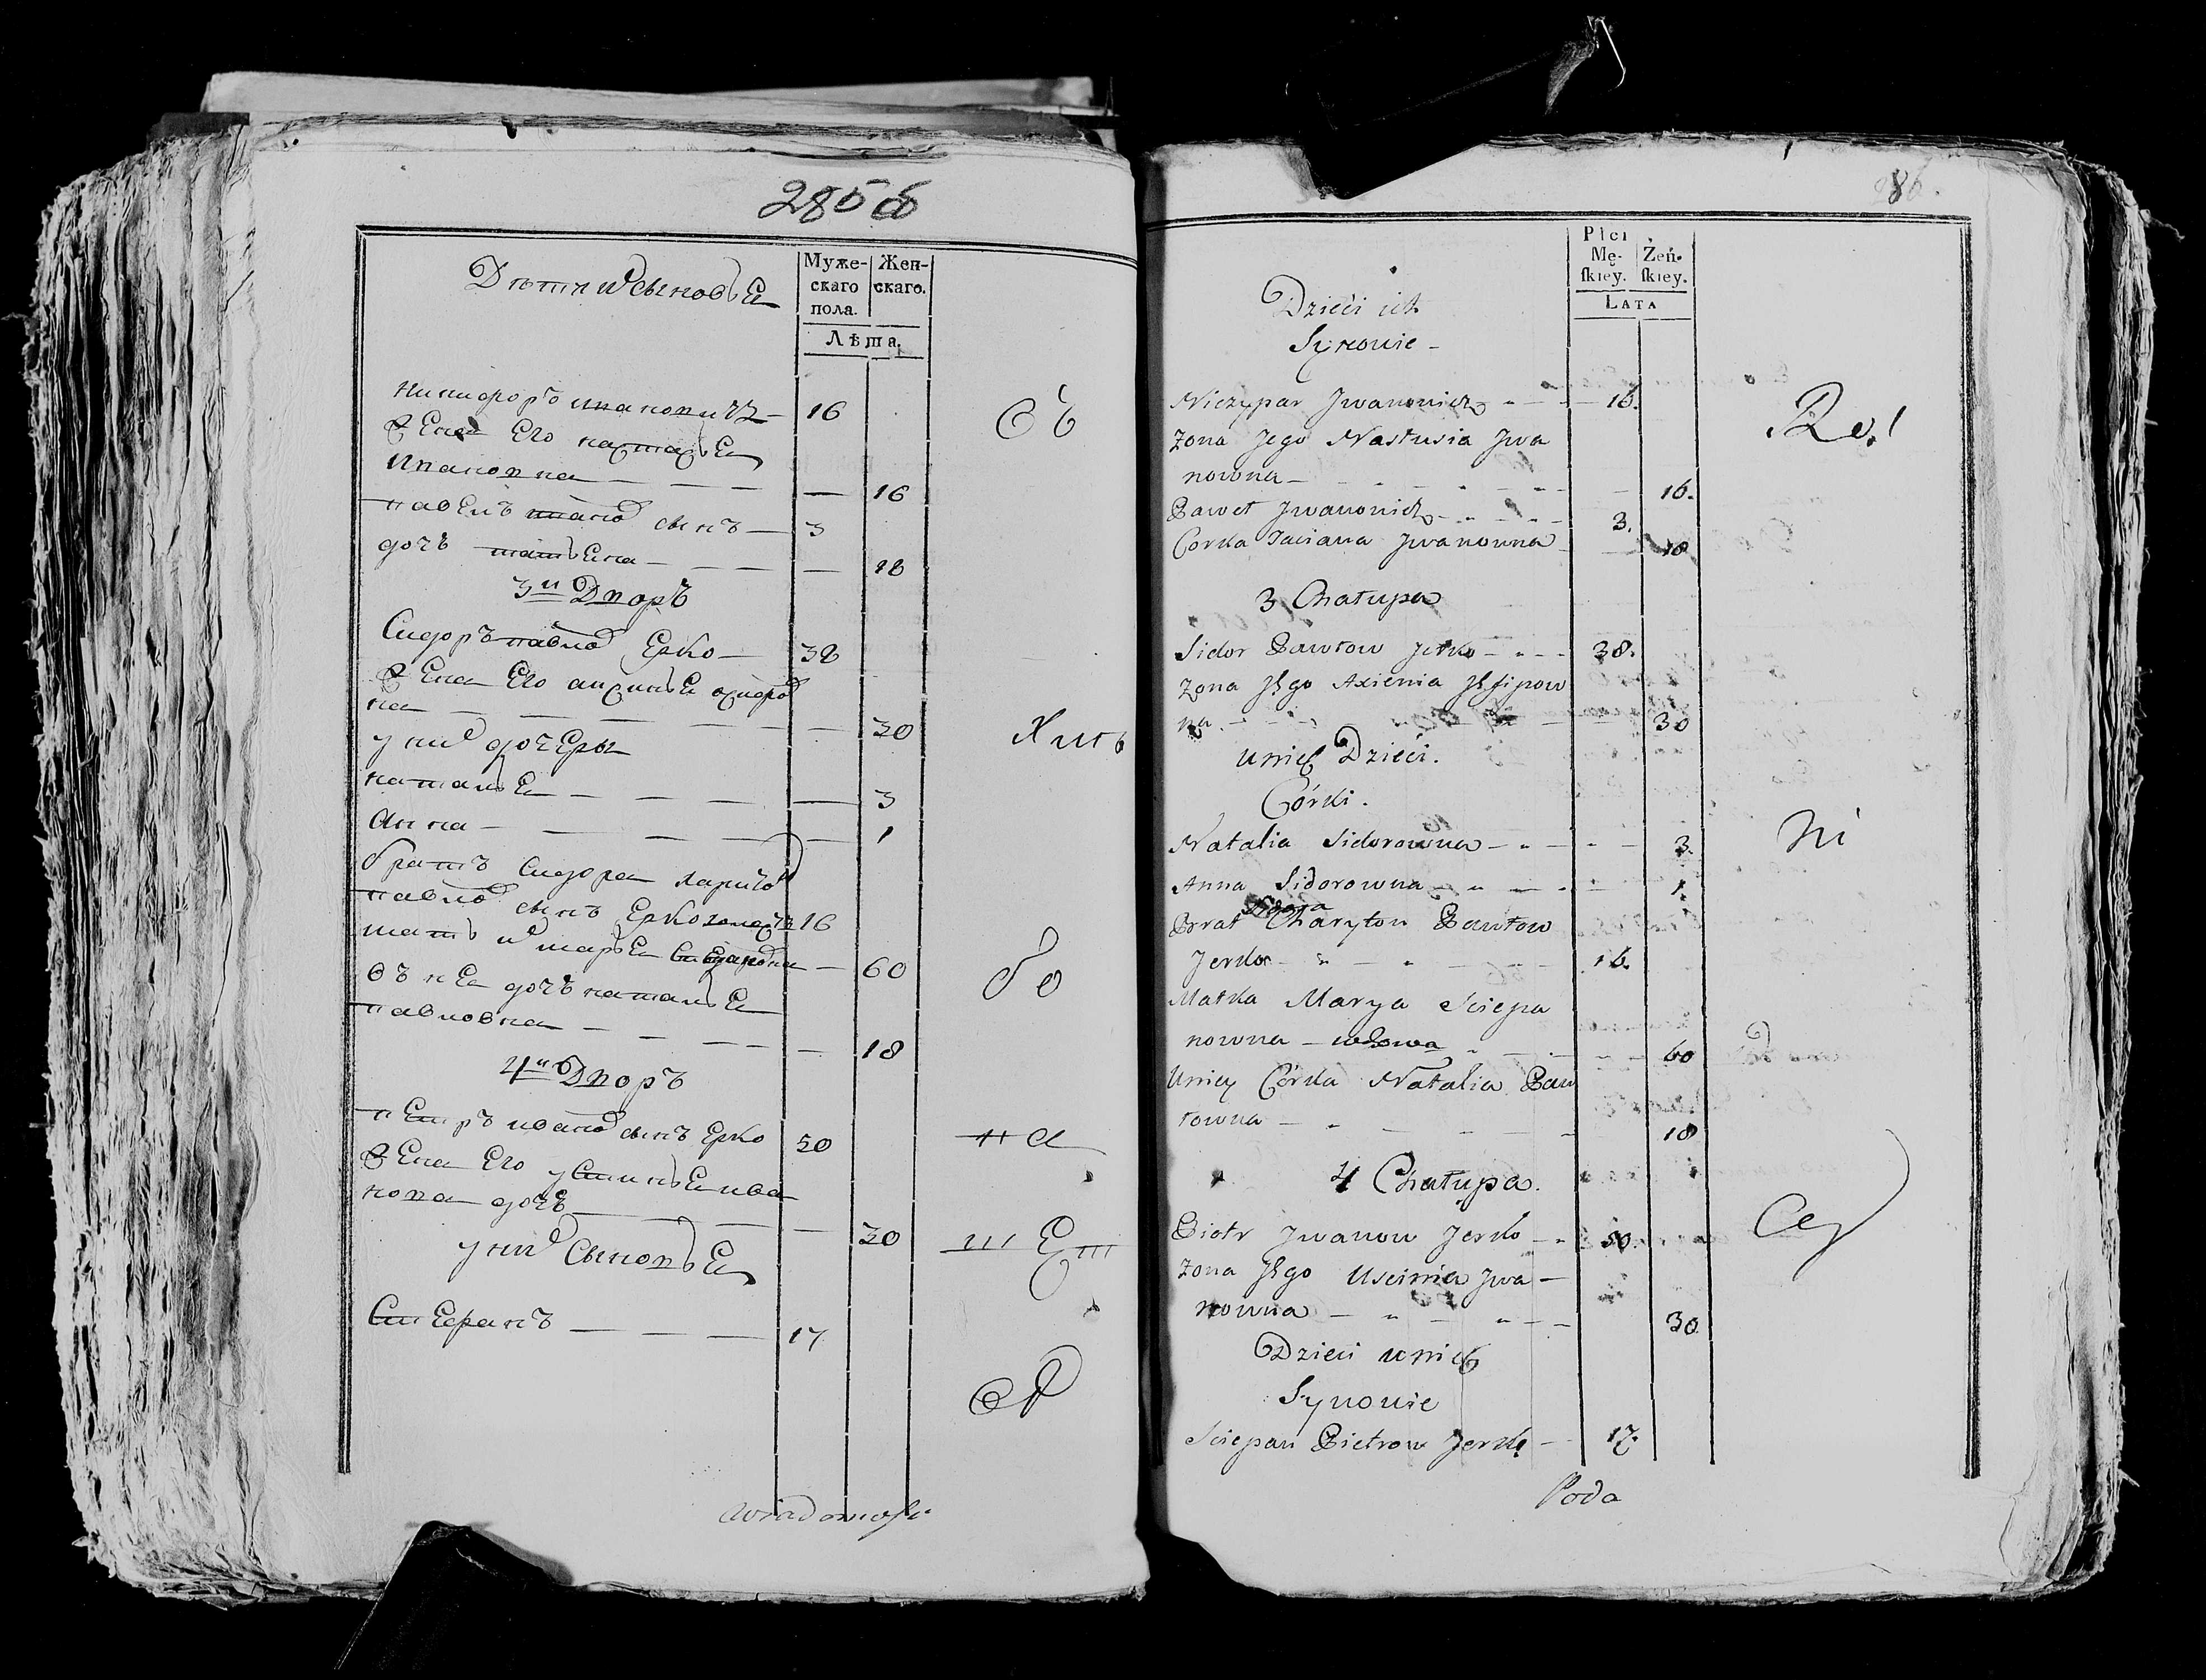 285 об
Муже-
скаго
пола.
Жен-
скаго.
Лѣта.
Дѣти ихъ сыновья
Никифоръ Ивановичъ — 16
Жена Его настасья
Ивановна — — — — 16
павелъ ивановъ сынъ — 3
дочь татьяна — — — — 18
3й Дворъ
Сидоръ павловъ Ерко — 38
Жена Его аксинья осипов
на — — — — 30
у них дочери
наталья — — — — 3
Анна — — — — 1
братъ Сидора харитон
павлов сынъ Ерко холостъ 16
мать их марья — 60
у нея дочь наталья
павловна — — — — 18
4й Дворъ
петръ иванов сынъ Ерко 50
Жена Его устинья ива
нова дочь — — — 30
у них сыновья
Степанъ — — — 17
Объ
бо
на
шЕт
wiadomości
86.
Płci
Mę-
ſkiey.
Żeń-
ſkiey.
LATA
Dzieci ich
Synowie -
Niczypar Jwanowicz - - - 16.
Zona Jego Nastusia Jwa
nowna - - - - - 16.
Paweł Jwanowicz - - - 3.
Corka Taciana Jwanowna - 18
3 Chałupa
Sidor Pawłow Jerko - - - 38.
Zona Jego Axienia Jesipow
na - - - - 30
u nich Dzieci.
Córki.
Natalia Sidorowna - - - - 3.
Anna Sidorowna - - - - 1.
Sidora
Brat Charyton Pawłow
Jerko - - - - 16.
Matka Marya Sciepa
nowna - wdowa - - - 60
U niey Córka Natalia Paw
łowna - - - - 18
4 Chałupa.
Piotr Jwanow Jerko - - 50.
Zona Jego Uscinia Jwa-
nowna - - - - 30.
Dzieci u nich
Synowie
Sciepan Pietrow Jerko - - 17.
Re.!
ni
Poda